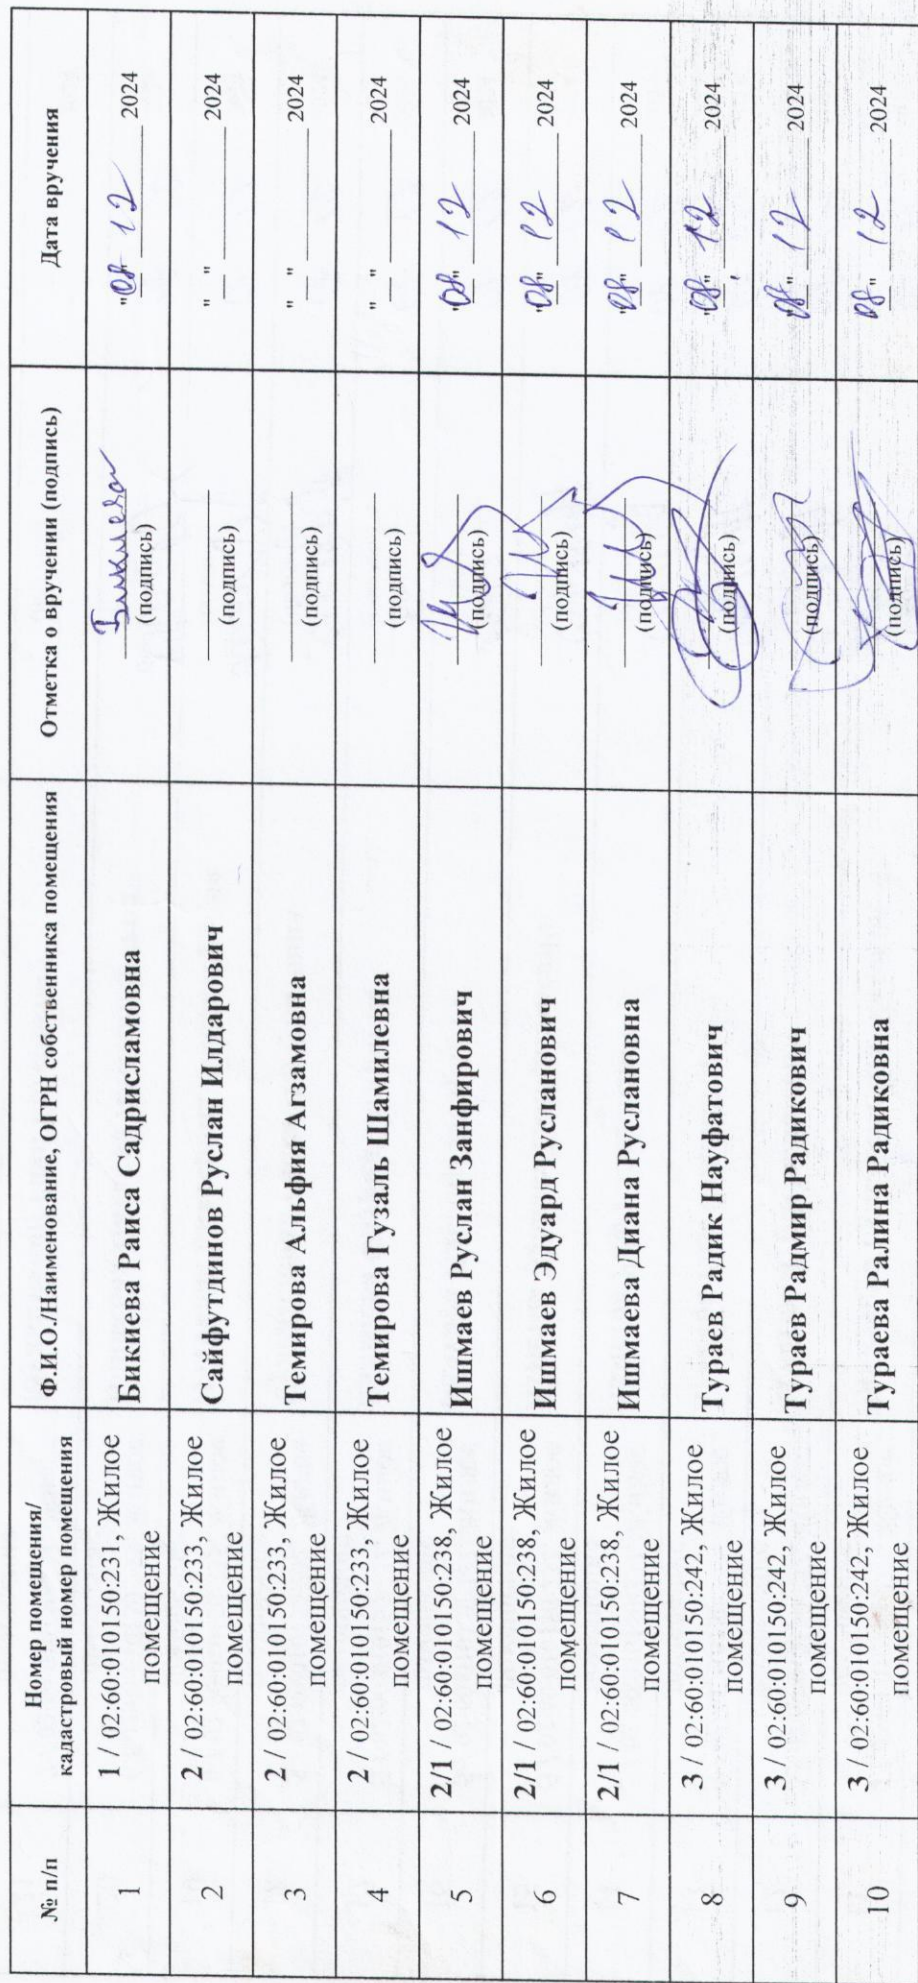 № п/п
Номер помещения/
кадастровый номер помещения
Ф.И.О./Наименование, ОГРН собственника помещения
Отметка о вручении (подпись)
Дата вручения
1
1 / 02:60:010150:231, Жилое
помещение
Бикиева Раиса Садрисламовна
Бикиева
(подпись)
"08" 12 2024
2
2 / 02:60:010150:233, Жилое
помещение
Сайфутдинов Руслан Илдарович
(подпись)
"__" ________ 2024
3
2 / 02:60:010150:233, Жилое
помещение
Темирова Альфия Агзамовна
(подпись)
"__" ________ 2024
4
2 / 02:60:010150:233, Жилое
помещение
Темирова Гузаль Шамилевна
(подпись)
"__" ________ 2024
5
2/1 / 02:60:010150:238, Жилое
помещение
Ишмаев Руслан Занфирович
(подпись)
"08" 12 2024
6
2/1 / 02:60:010150:238, Жилое
помещение
Ишмаев Эдуард Русланович
(подпись)
"08" 12 2024
7
2/1 / 02:60:010150:238, Жилое
помещение
Ишмаева Диана Руслановна
(подпись)
"08" 12 2024
8
3 / 02:60:010150:242, Жилое
помещение
Тураев Радик Науфатович
(подпись)
"08" 12 2024
9
3 / 02:60:010150:242, Жилое
помещение
Тураев Радмир Радикович
(подпись)
"08" 12 2024
10
3 / 02:60:010150:242, Жилое
помещение
Тураева Ралина Радиковна
(подпись)
"08" 12 2024